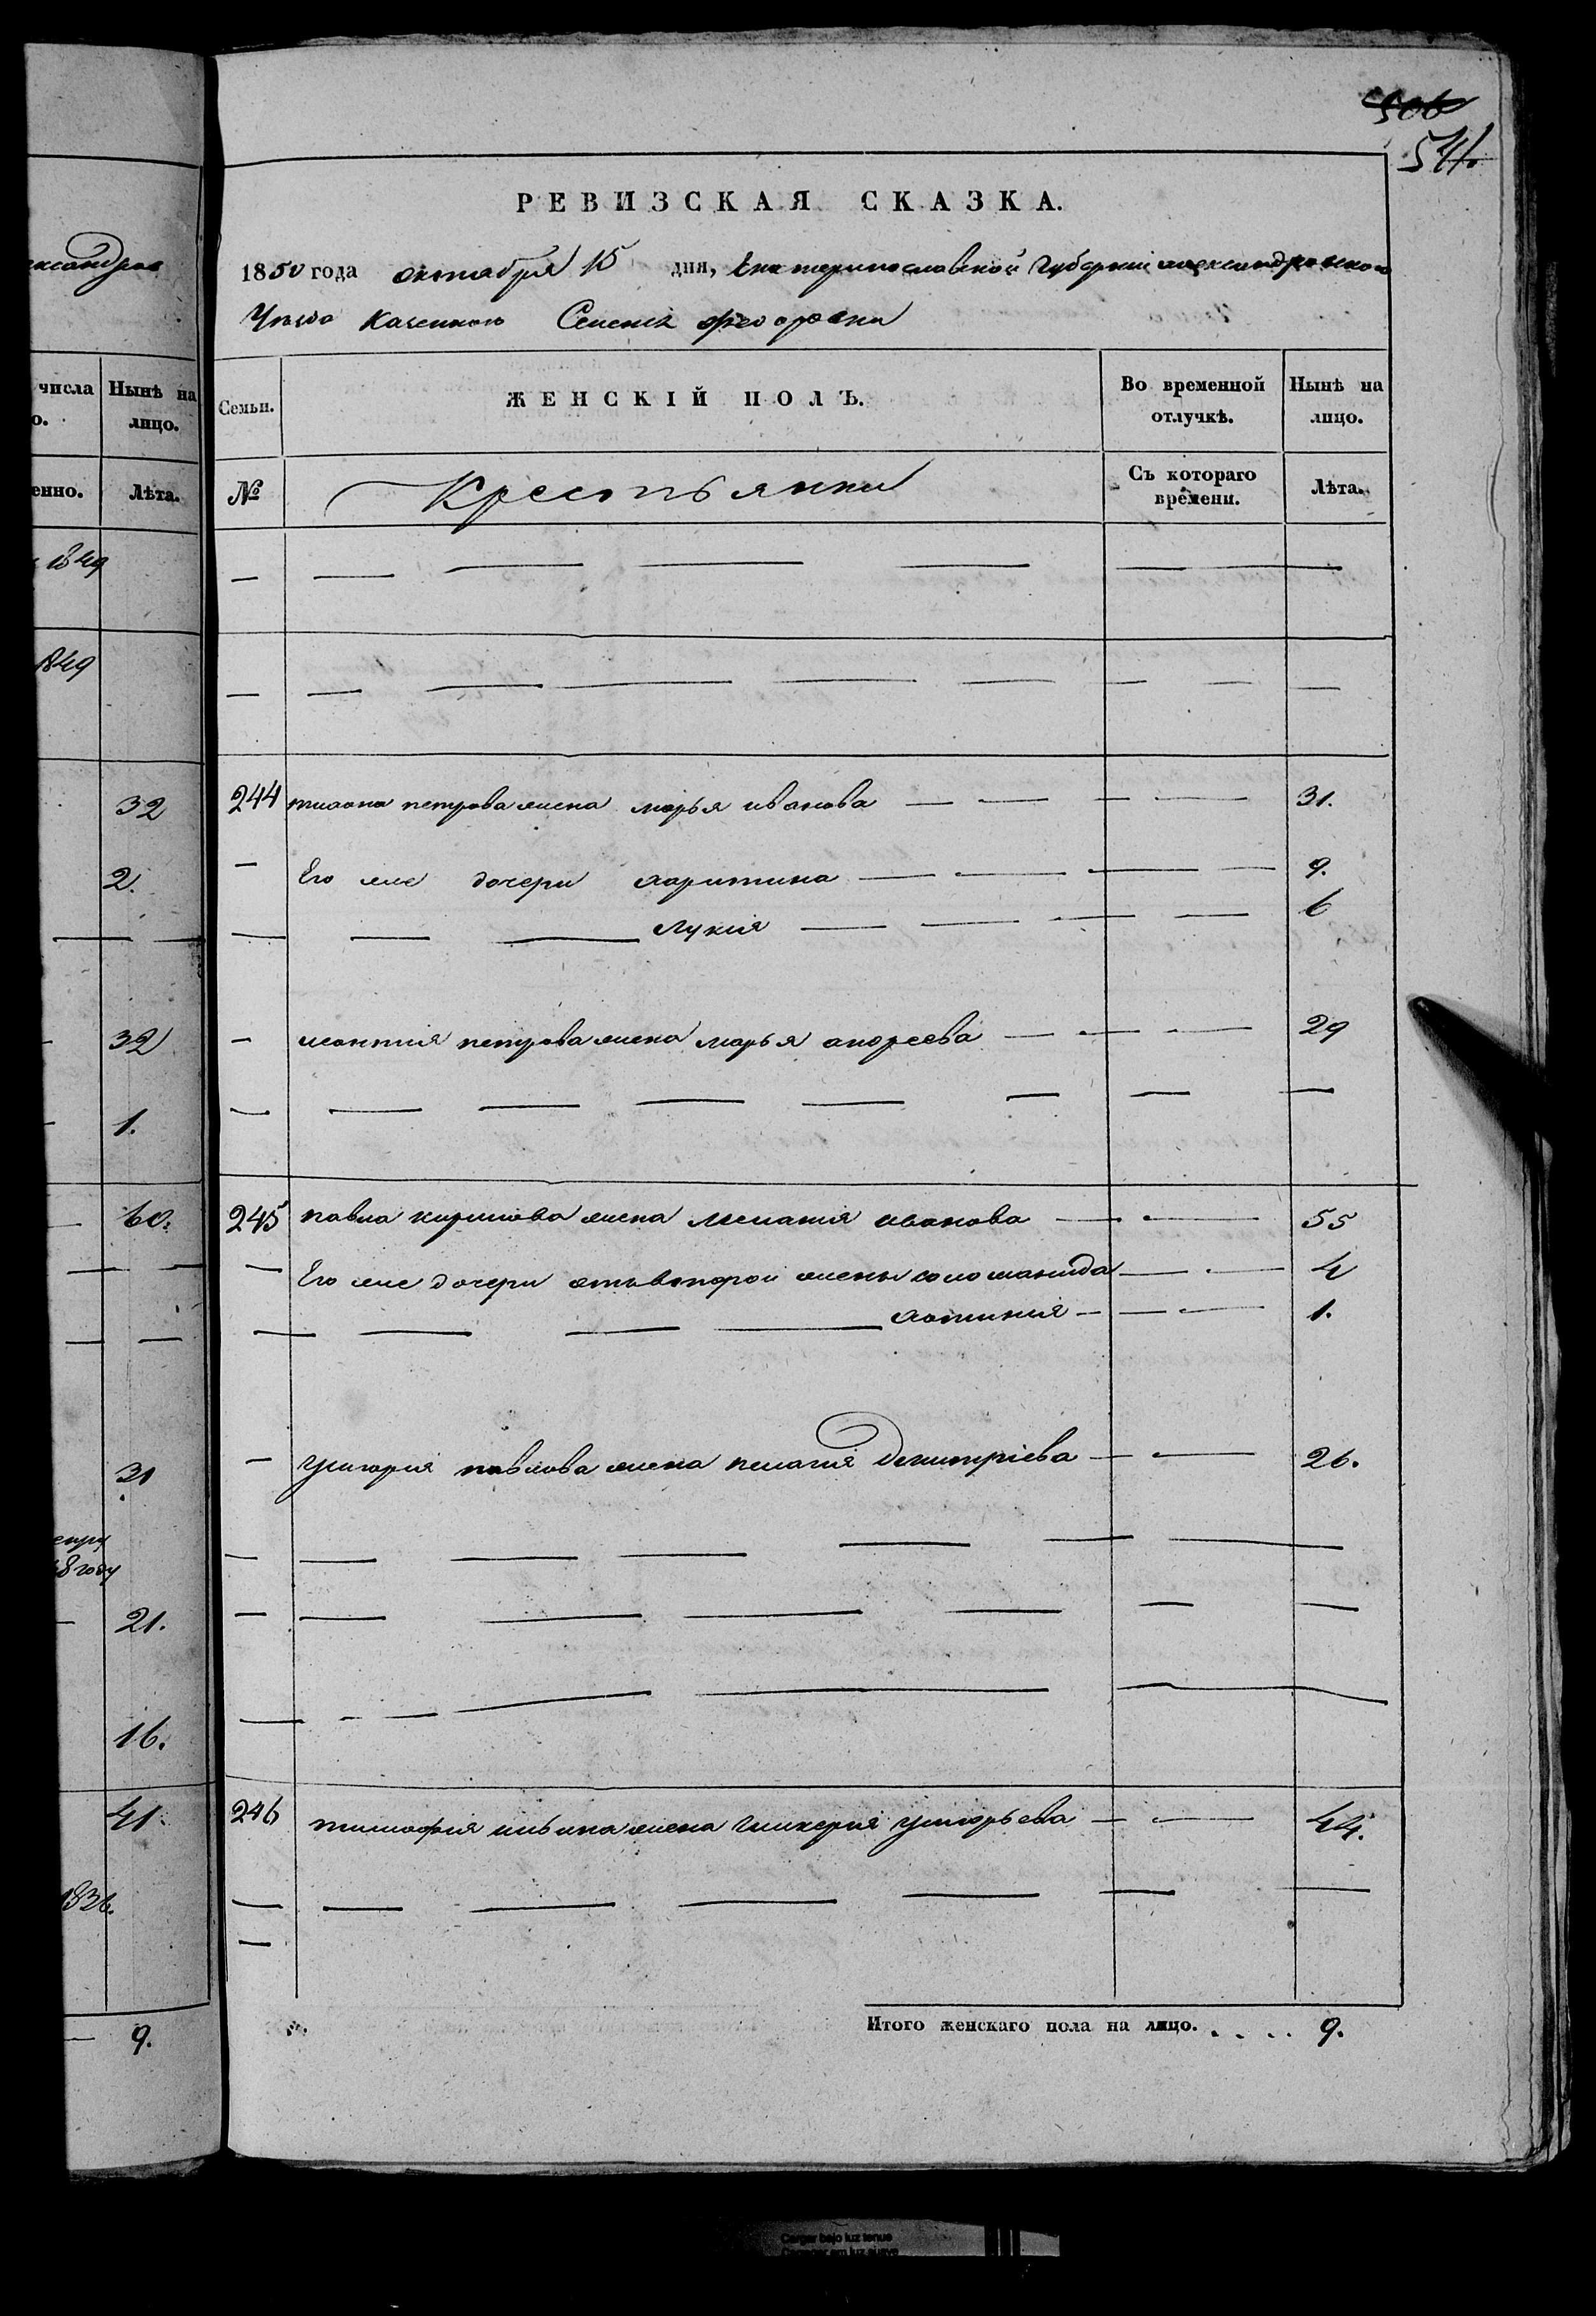 506
541.
ександров
числа
о.
Нынѣ на
лицо.
енно.
Лѣта.
1849
1849
32
2.
32
1.
60.
31
18 году
21.
16.
41.
1836.
9.
РЕВИЗСКАЯ СКАЗКА.
1850 года октября 15 дня, Екатеринославской Губерніи александровского
Уезда казенного Селенія федоровки
Семьи.
ЖЕНСКІЙ ПОЛЪ.
Во временной
отлучкѣ.
Нынѣ на
лицо.
№
Крестьянки
Съ котораго
времени.
Лѣта.
244 петрова жена марья иванова 31.
Его же дочери харитина 9.
лукия 6
петрова жена марья андреева 29
245 павла жена мелания иванова 55
Его же дочери отъ второй жены соломанида 4
хотиния 1.
григория павлова жена пелагия Демитріева 26.
246 тимофия ильина жена гликерия григорьева 44.
Итого женскаго пола на лицо. . . . . 9.